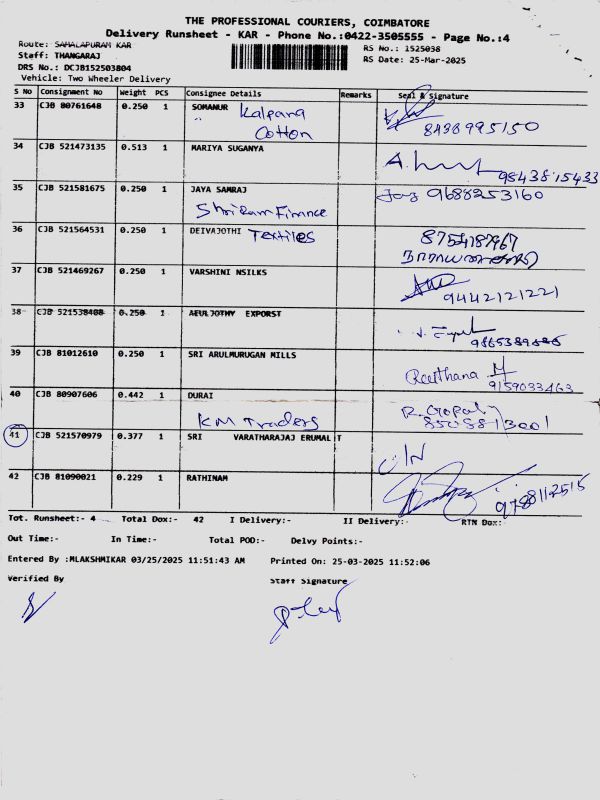 THE PROFESSIONAL COURIERS, COIMBATORE
Delivery Runsheet - KAR - Phone No.:0422-3505555 - Page No.:4
Route: SAMALAPURAM KAR
RS No.: 1525038
Staff: THANGARAJ
RS Date: 25-Mar-2025
DRS No.: DCJB152503804
Vehicle: Two Wheeler Delivery
S No Consignment No Weight PCS Consignee Details Remarks Seal & Signature
33 CJB 80761648 0.250 1 SOMANUR Kalpana
" Cotton 8438995150
34 CJB 521473135 0.513 1 MARIYA SUGANYA
9843815433
35 CJB 521581675 0.250 1 JAYA SAMRAJ Jay 9688253160
Shri Ram Finance
36 CJB 521564531 0.250 1 DEIVAJOTHI Textiles 8754187967
37 CJB 521469267 0.250 1 VARSHINI NSILKS
9442121221
38 CJB 521538408 0.250 1 AEULJOTHY EXPORST
39 CJB 81012610 0.250 1 SRI ARULMURUGAN MILLS
Reethana M
9159033463
40 CJB 80907606 0.442 1 DURAI R. Gopal
KM Traders
41 CJB 521570979 0.377 1 SRI VARATHARAJAJ ERUMAL T
O/N
42 CJB 81090021 0.229 1 RATHINAM
9788112515
Tot. Runsheet:- 4 Total Dox:- 42 I Delivery:- II Delivery:- RTN Dox:-
Out Time:- In Time:- Total POD:- Delvy Points:-
Entered By :MLAKSHMIKAR 03/25/2025 11:51:43 AM Printed On: 25-03-2025 11:52:06
Verified By Staff Signature